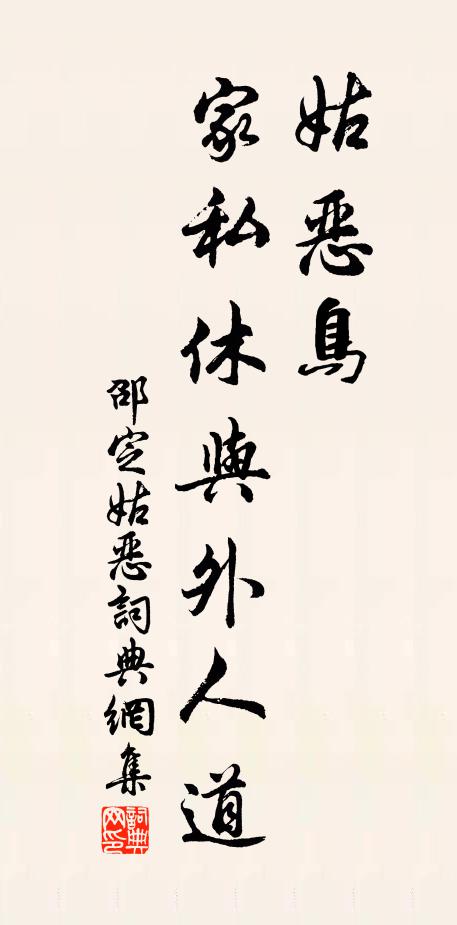 姑恶鳥
家私休與外人道
邵定姑恶詞典網集
詞典網印